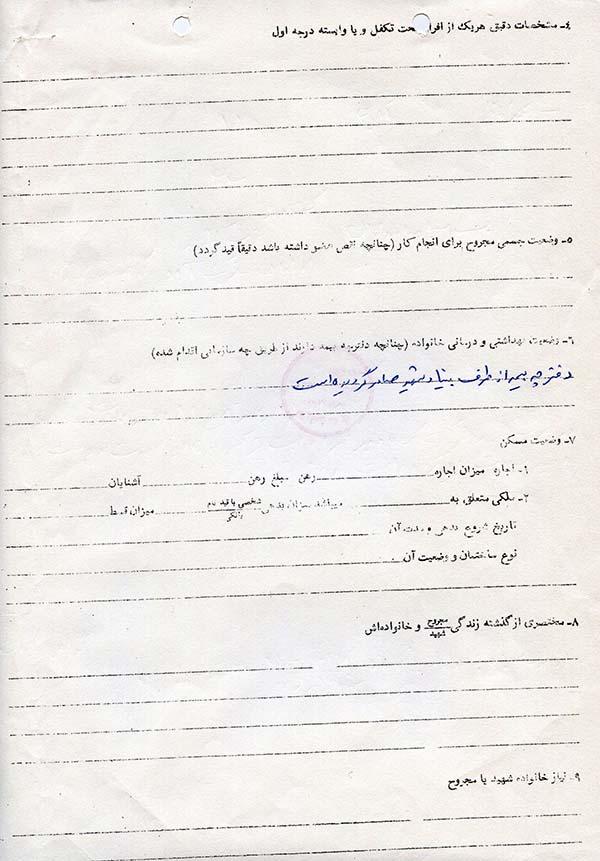 ۴ـ مشخصات دقیق هریک از افراد تحت تکفل و یا وابسته درجه اول
۵ـ وضعیت جسمی مجروح برای انجام کار (چنانچه نقص عضو داشته باشد دقیقاً قید گردد)
۶ـ وضعیت بهداشتی و درمانی خانواده (چنانچه دفترچه بیمه دارند از طریق چه سازمانی اقدام شده)
دفترچه بیمه از طرف بنیاد شهید صادر گردیده است
۷ـ وضعیت مسکن
۱ـ اجاره میزان اجاره رهن مبلغ رهن آشنایان
۲ـ ملکی متعلق به میباشد میزان بدهی شخصی با قید نام بانکی میزان قسط
تاریخ شروع بدهی و مدت آن
نوع ساختمان و وضعیت آن
۸ـ مختصری از گذشته زندگی مجروح شهید و خانواده‌اش
۹ـ نیاز خانواده شهید یا مجروح